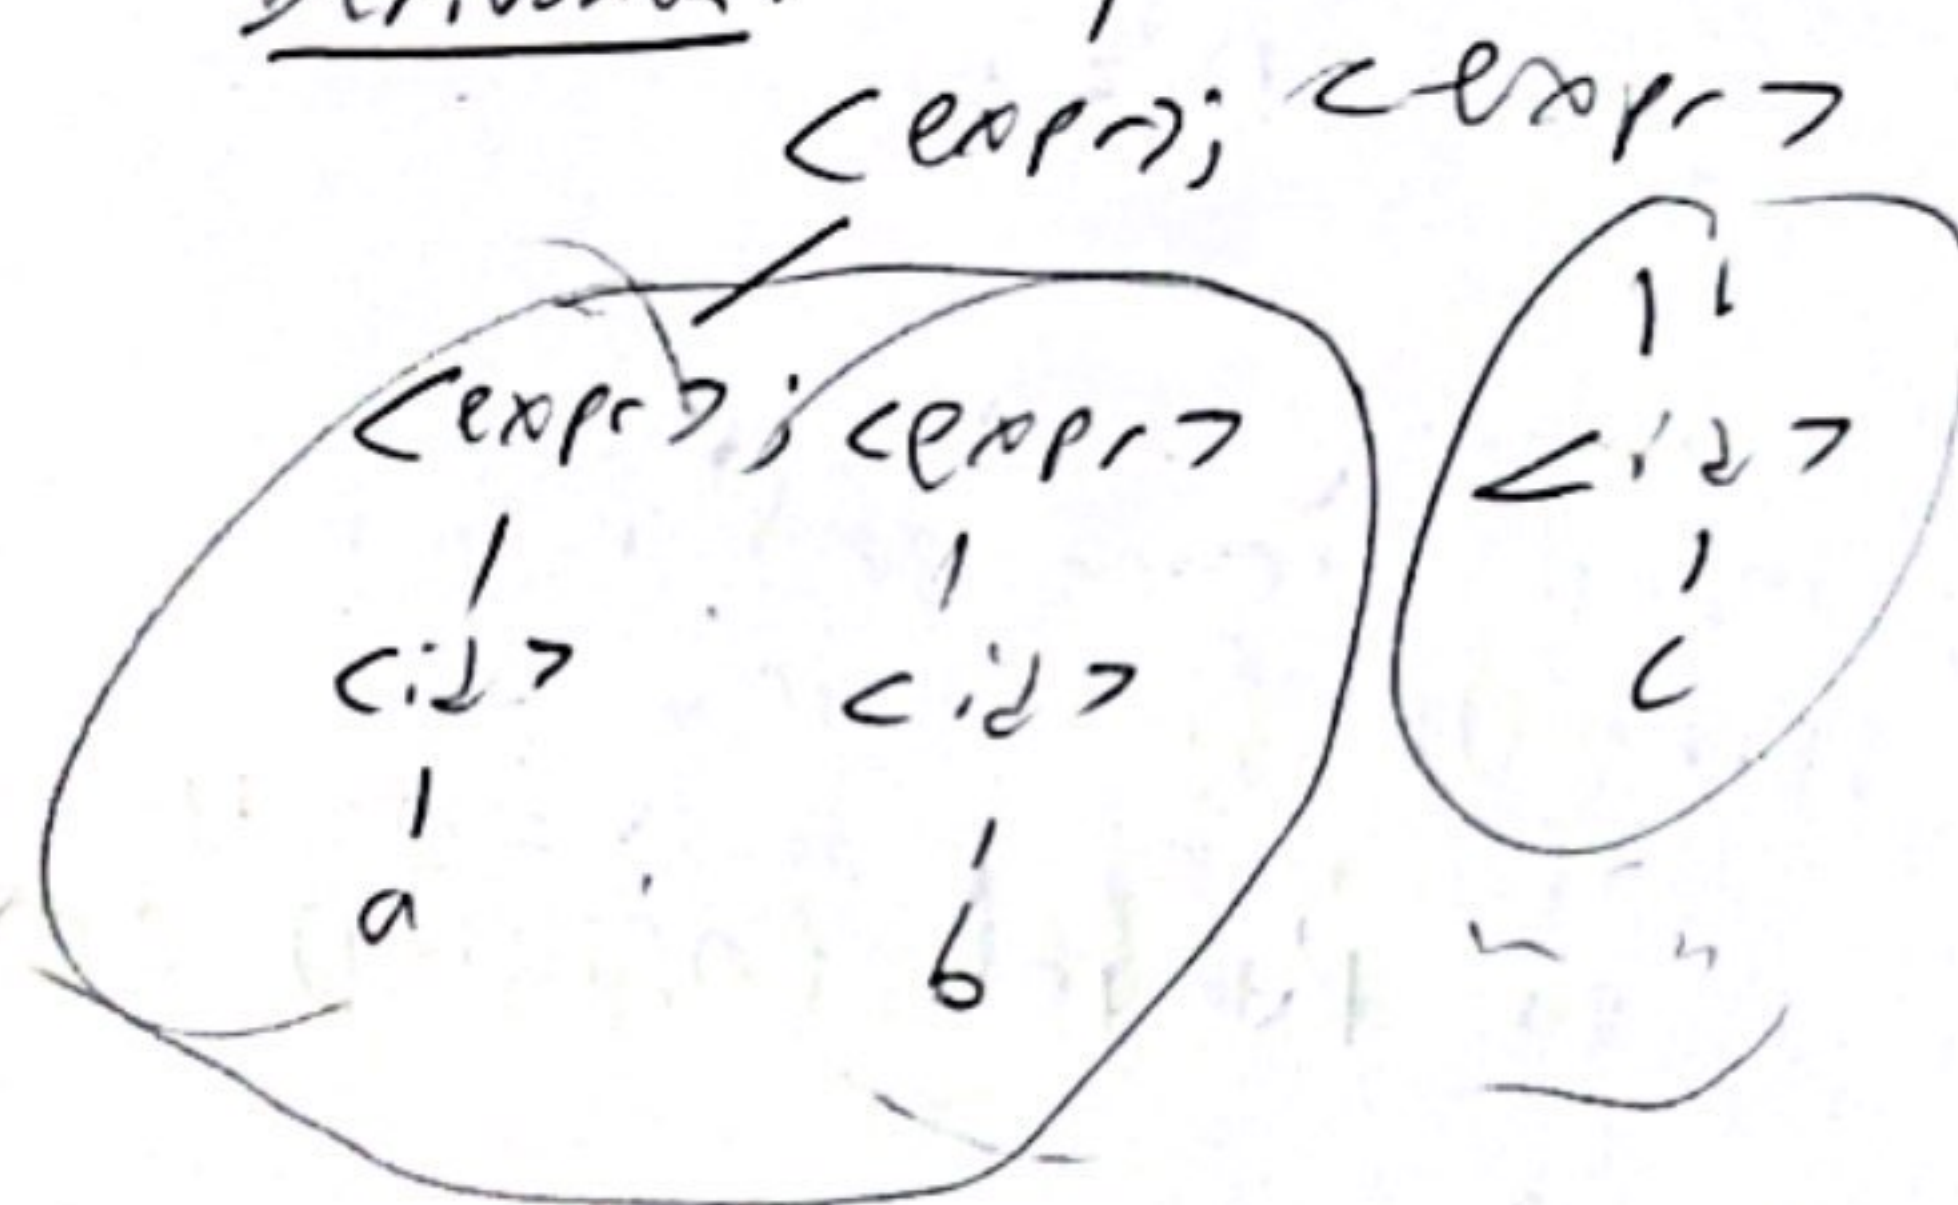 <expr>; <expr>
<expr>; <expr>
<id> <id> <id>
c
a
b